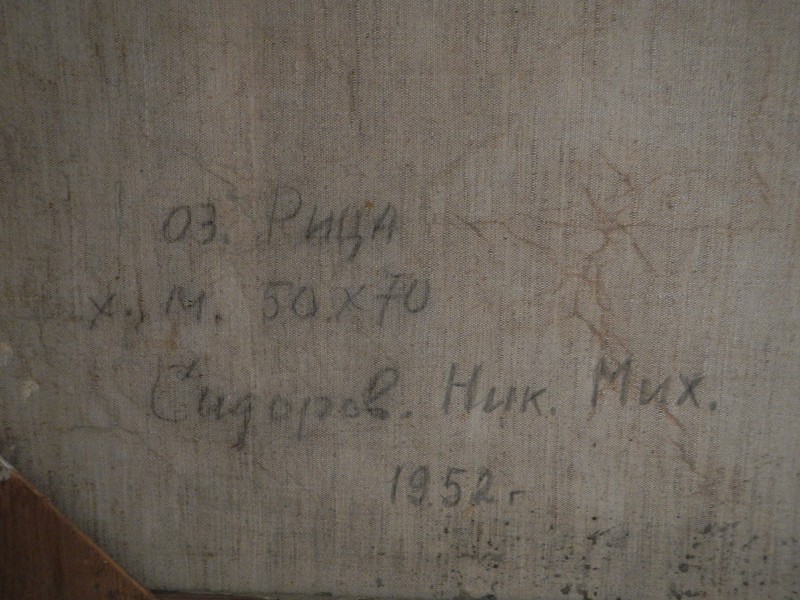 оз. Рица
х. м. 50х70
Сидоров. Ник. Мих.
1952 г